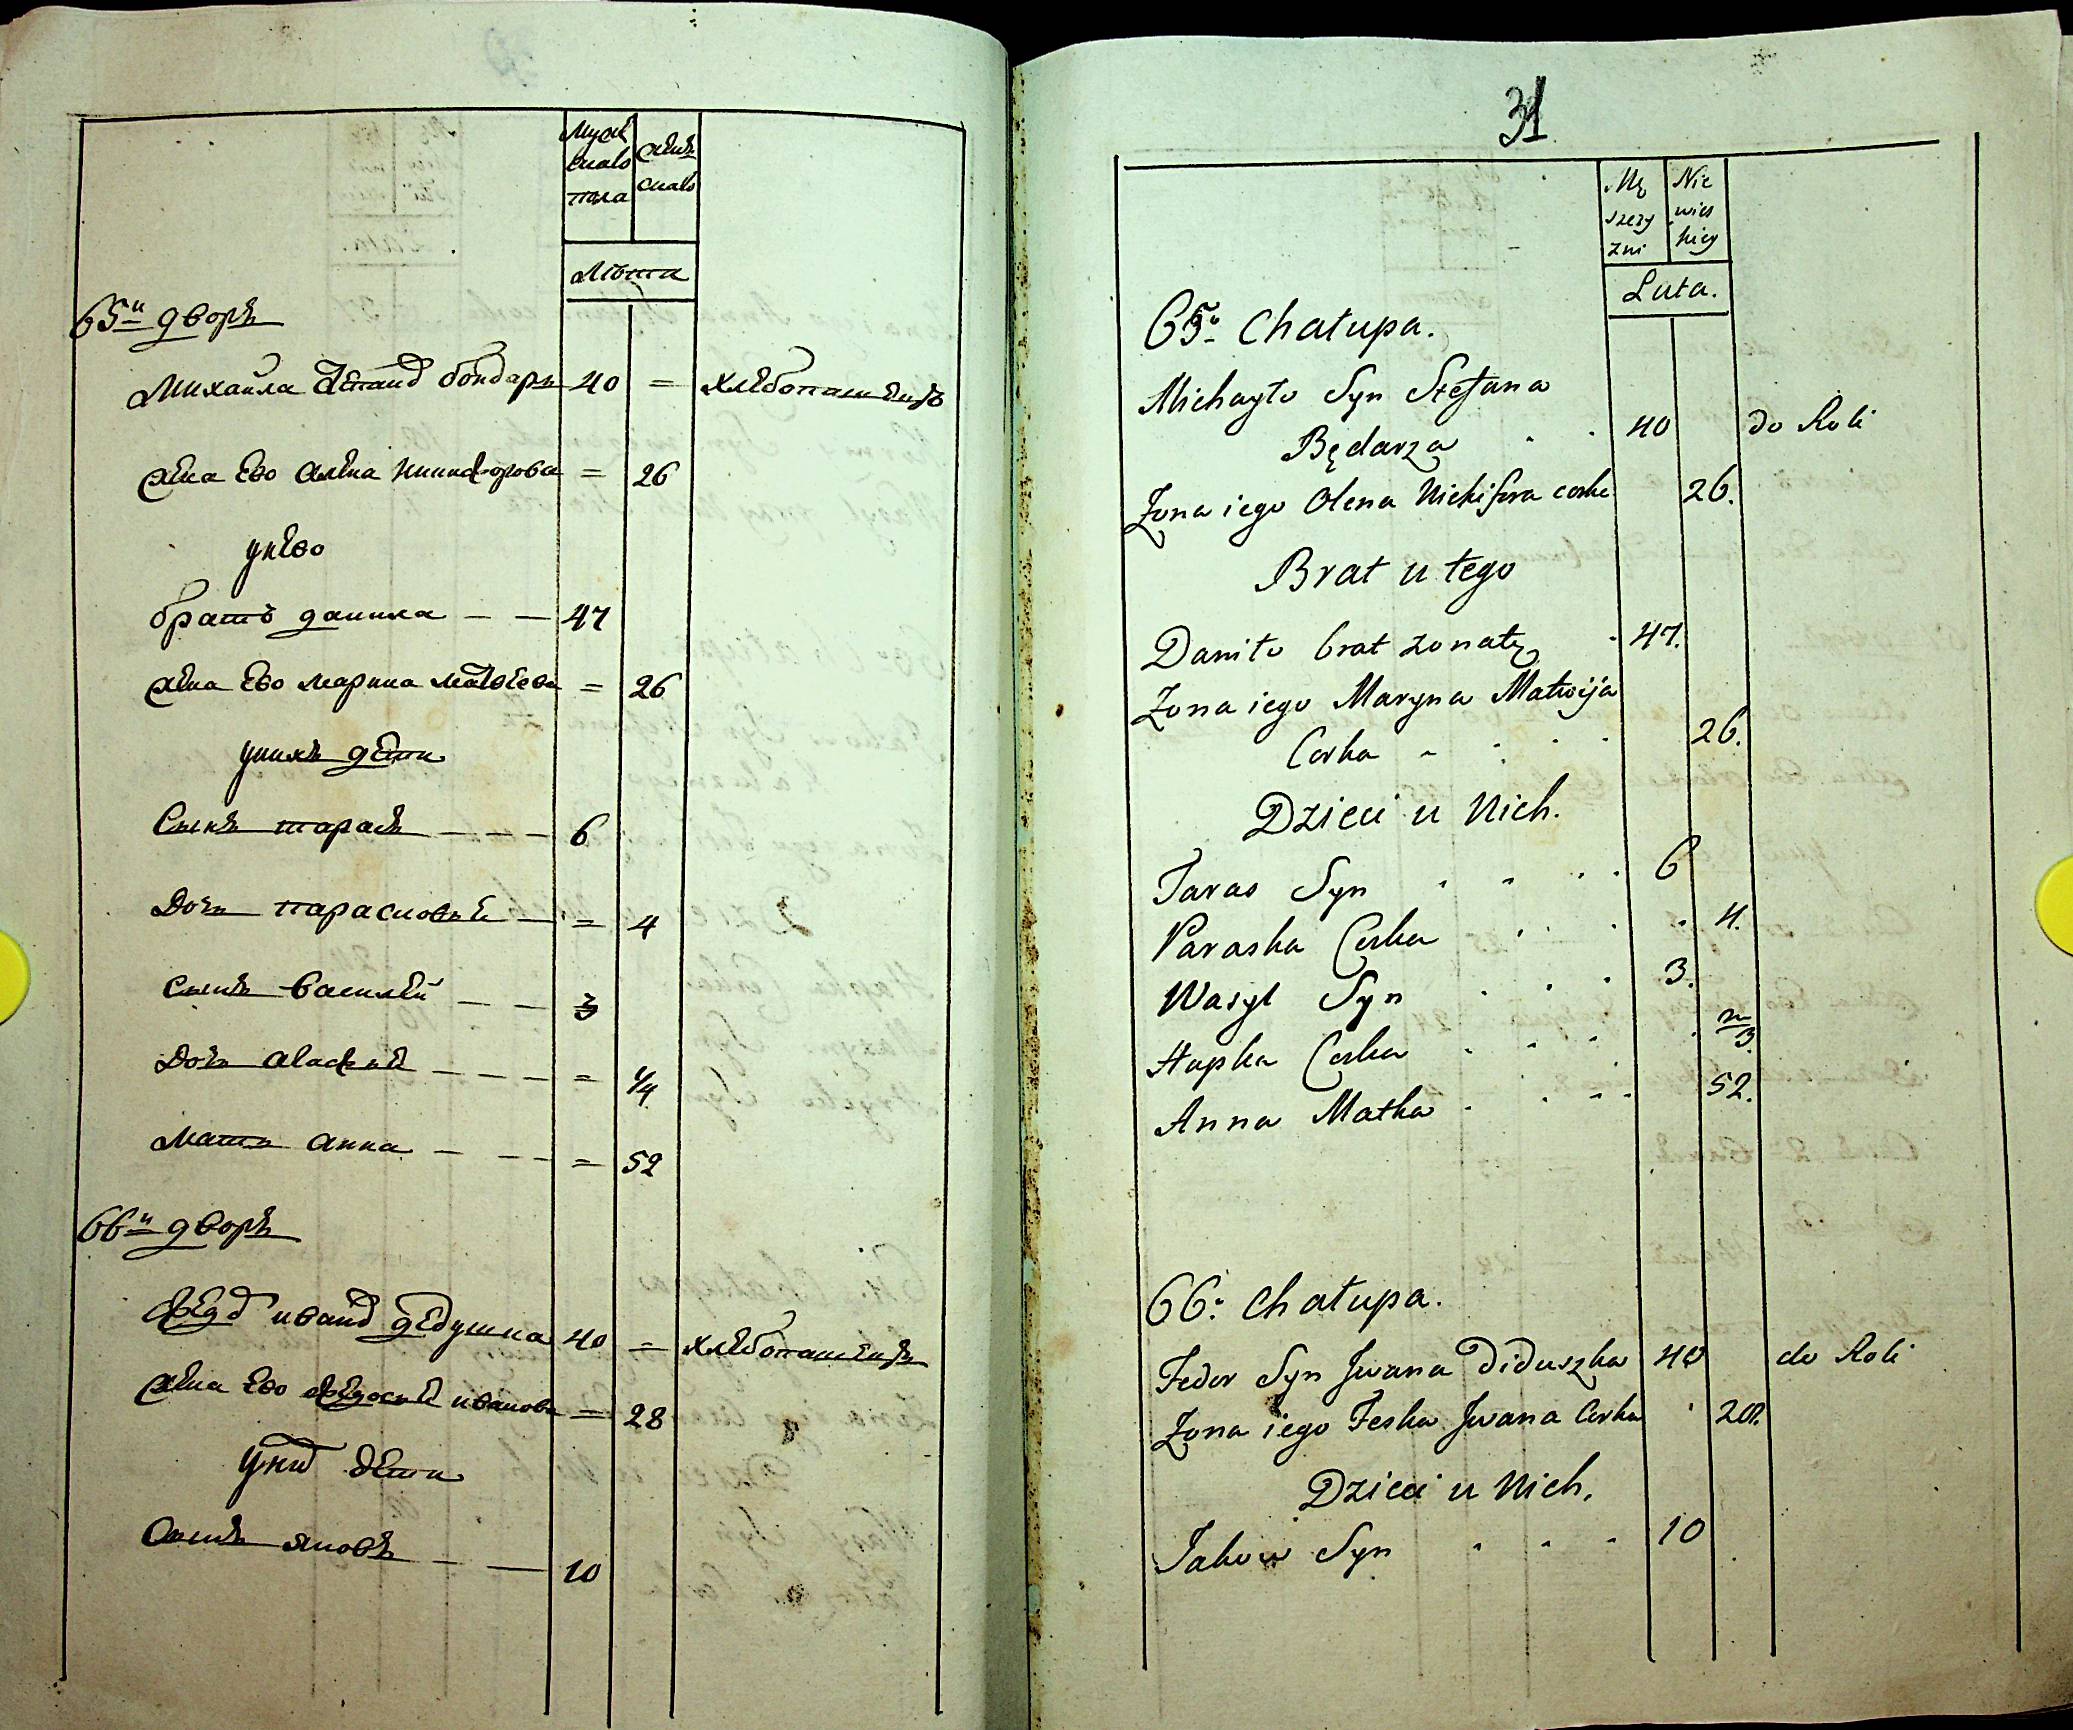 Мужеска пола
Женска
Лѣта
65й дворъ
Михайла Степанов бондаръ 40 = хлебопашецъ
Жена Ево Алена Никифорова = 26
у нево
братъ данила — — 47
Жена Ево марина матвѣева = 26
у нихъ дети
Сынъ тарасъ — — — 6
Дочь парасковья — = 4
сынъ василей — — 3
Дочь — — — = 1/4
мать анна — — — = 52
66й дворъ
Федор иванов дедушка 40 = хлебопашецъ
Жена Ево Федосья иванова = 28
у них дети
Сынъ яковъ — — 10
31
Mę szczy zni
Nie wies kiey
Lata.
65. Chałupa.
Michayło Syn Stefana
Będarza 40 do Roli
Żona iego Olena Nickifora corka 26.
Brat u tego
Daniło brat zonaty 47.
Żona iego Maryna Matwija
Corka 26.
Dzieci u Nich.
Taras Syn 6
Paraska Corka 4.
Wasyl Syn 3.
Hapka Corka m 3.
Anna Matka 52.
66. Chałupa.
Fedor Syn Jwana Diduszka 40 do Roli
Żona iego Feska Jwana Corka 28.
Dzieci u Nich.
Jakow Syn 10